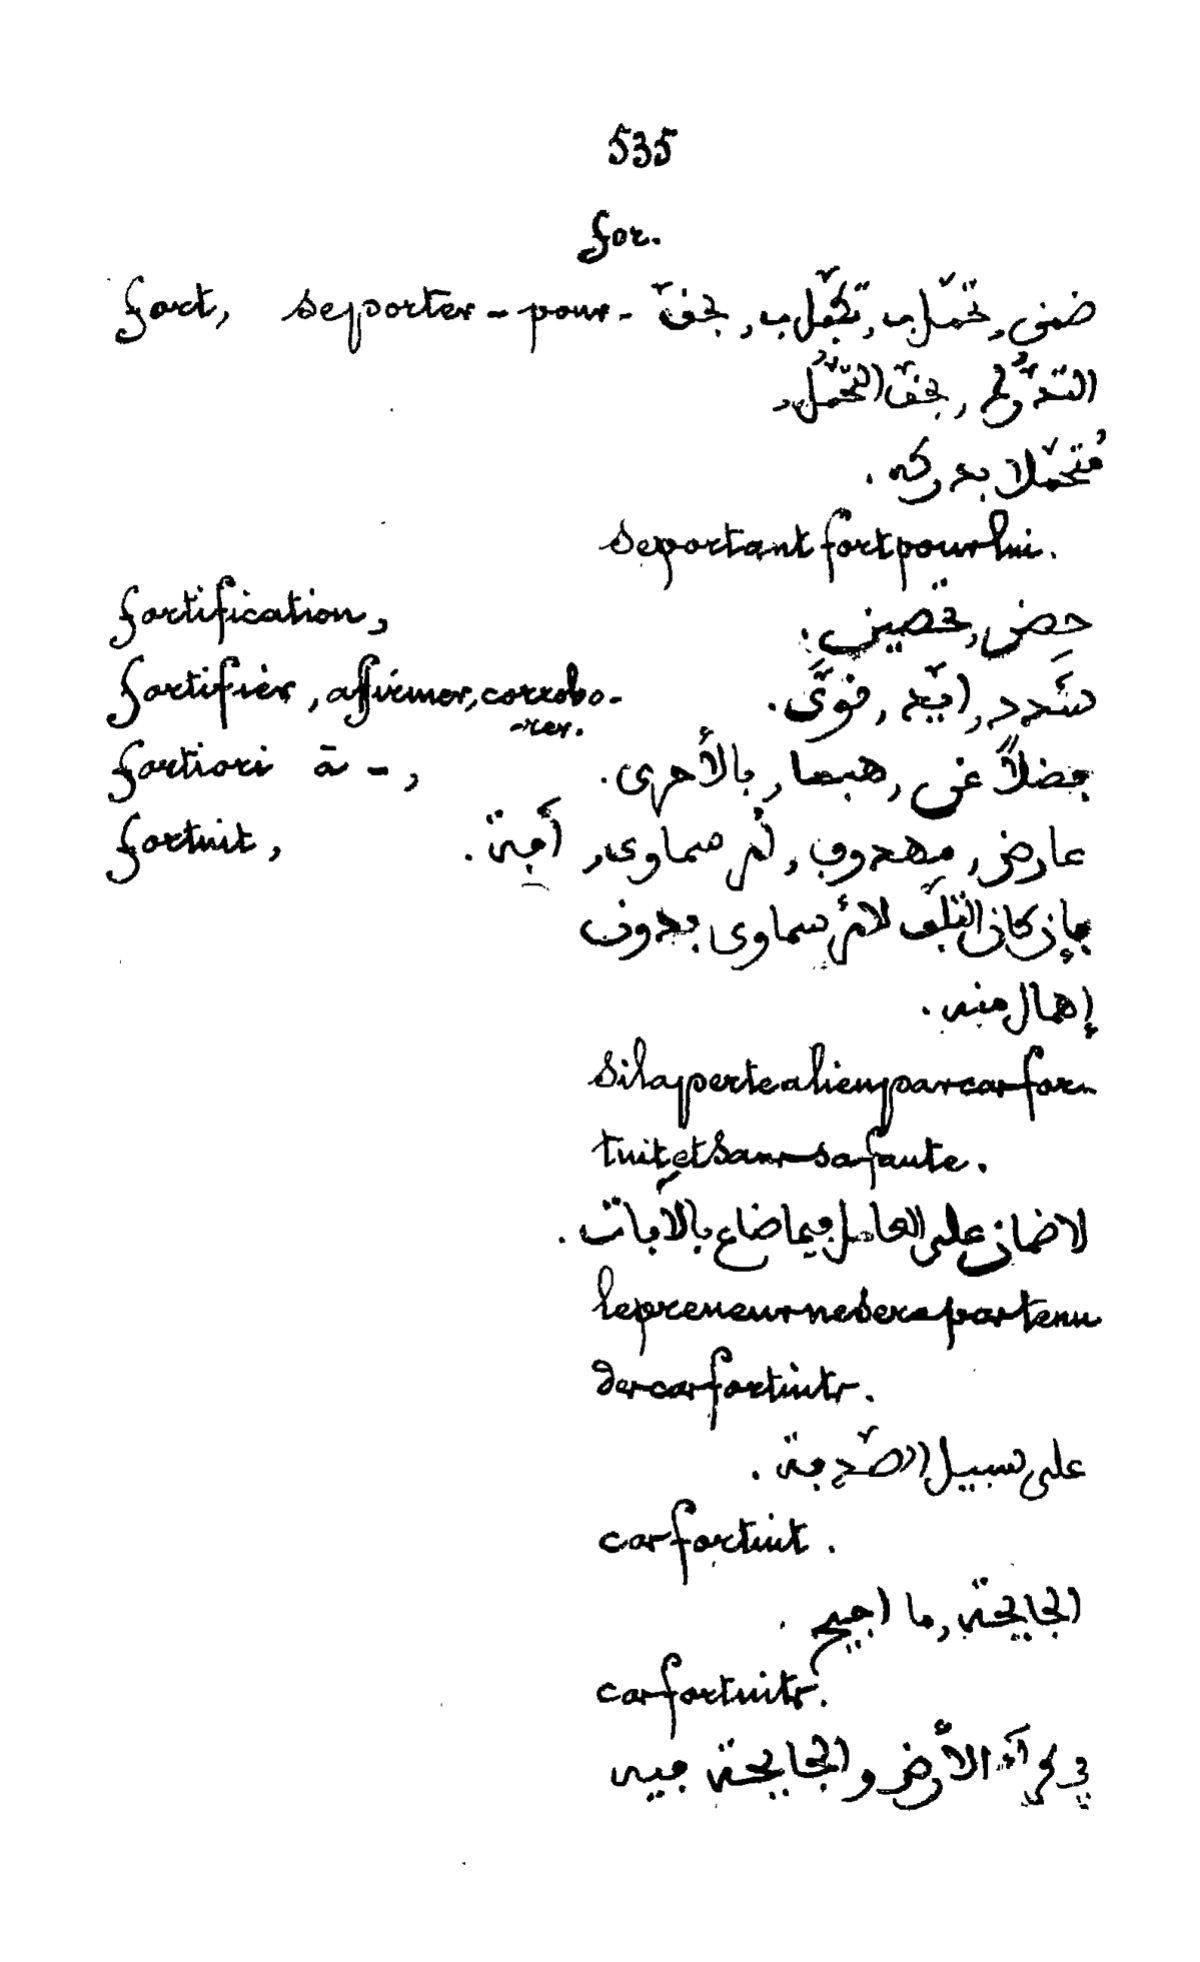 535
for.
fort, se porter - pour - ضمن, تحمّل ب, تكفّل ب, تحقّ
مُتحمّلا بدركه.
se portant fort pour lui.
fortification, حصن, تحصين.
fortifier, affirmer, corrobo- شَدد, ايّد, قوّى.
-rer.
fortiori à -, فضلاً عن, بالأحرى.
fortuit, عارض, أمر سماوى,
فإن كان التلف لأمر سماوى بدون
إهمال منه.
si la perte a lieu par cas for-
tuit et sans sa faute.
لا ضمان على العامل فيما ضاع بالآفات.
le preneur ne sera pas tenu
des cas fortuits.
على سبيل الصّدفة.
cas fortuit.
الجايحة, ما اجيح.
cas fortuits.
كراء الأرض والجايحة فيه